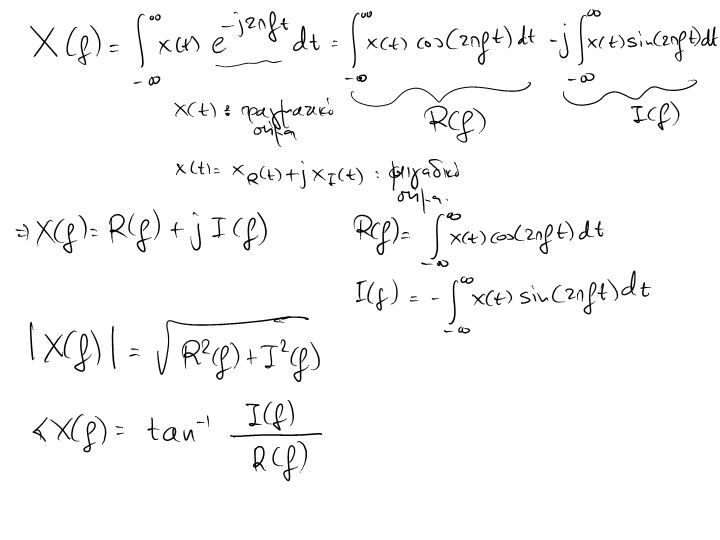 X(f) = ∫_{-∞}^{∞} x(t) e^{-j2πft} dt = ∫_{-∞}^{∞} x(t) cos(2πft) dt - j ∫_{-∞}^{∞} x(t) sin(2πft) dt
R(f) I(f)
x(t) : πραγματικό σήμα
x(t) = x_R(t) + j x_I(t) : μιγαδικό σήμα.
⇒ X(f) = R(f) + j I(f) R(f) = ∫_{-∞}^{∞} x(t) cos(2πft) dt
I(f) = - ∫_{-∞}^{∞} x(t) sin(2πft) dt
|X(f)| = √(R²(f) + I²(f))
∢X(f) = tan⁻¹ I(f) / R(f)